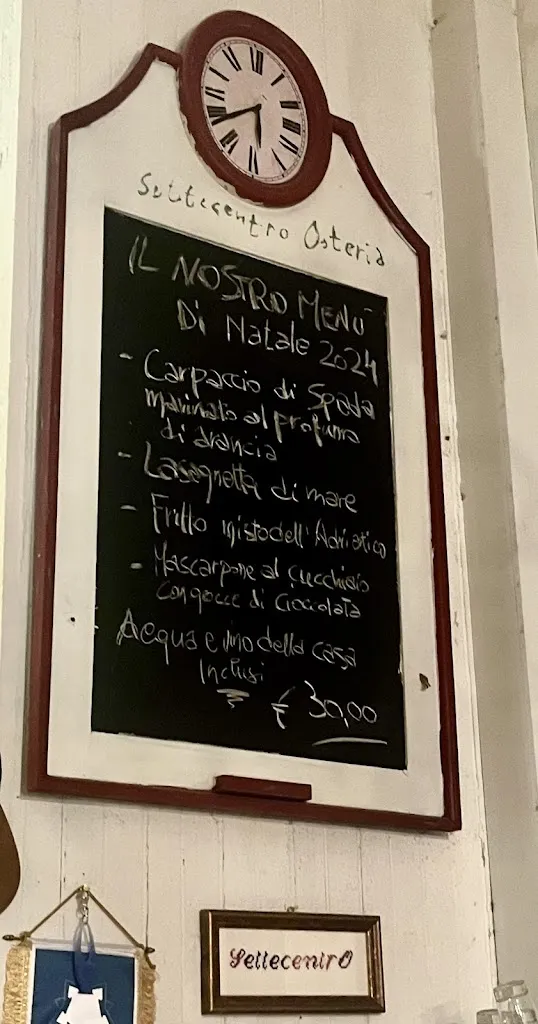 Settecentro Osteria
IL NOSTRO MENÙ
Di Natale 2024
- Carpaccio di Spada
marinato al profumo
di arancia
- Lasagnetta di mare
- Fritto misto dell'Adriatico
- Mascarpone al cucchiaio
con gocce di Cioccolata
Acqua e vino della casa
Inclusi
€ 30,00
Settecentro